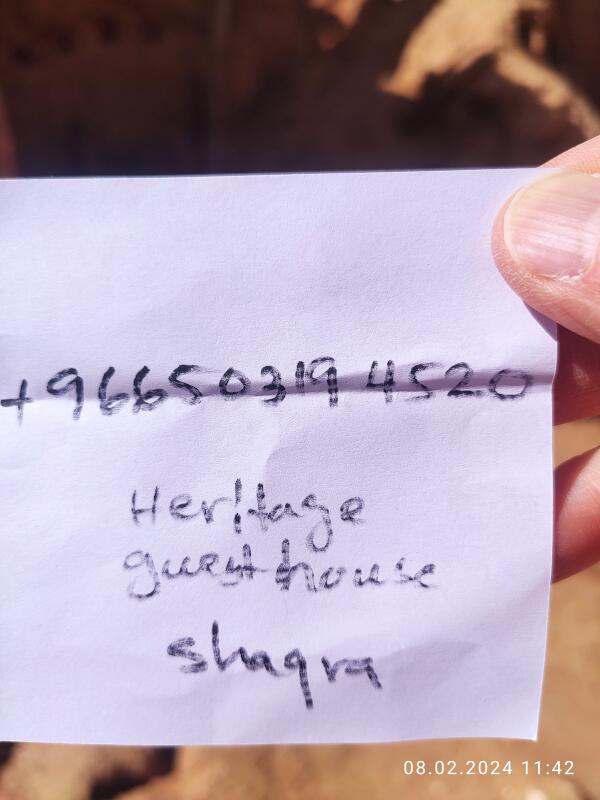 +966503194520
Heritage
guesthouse
shaqra
08.02.2024 11:42